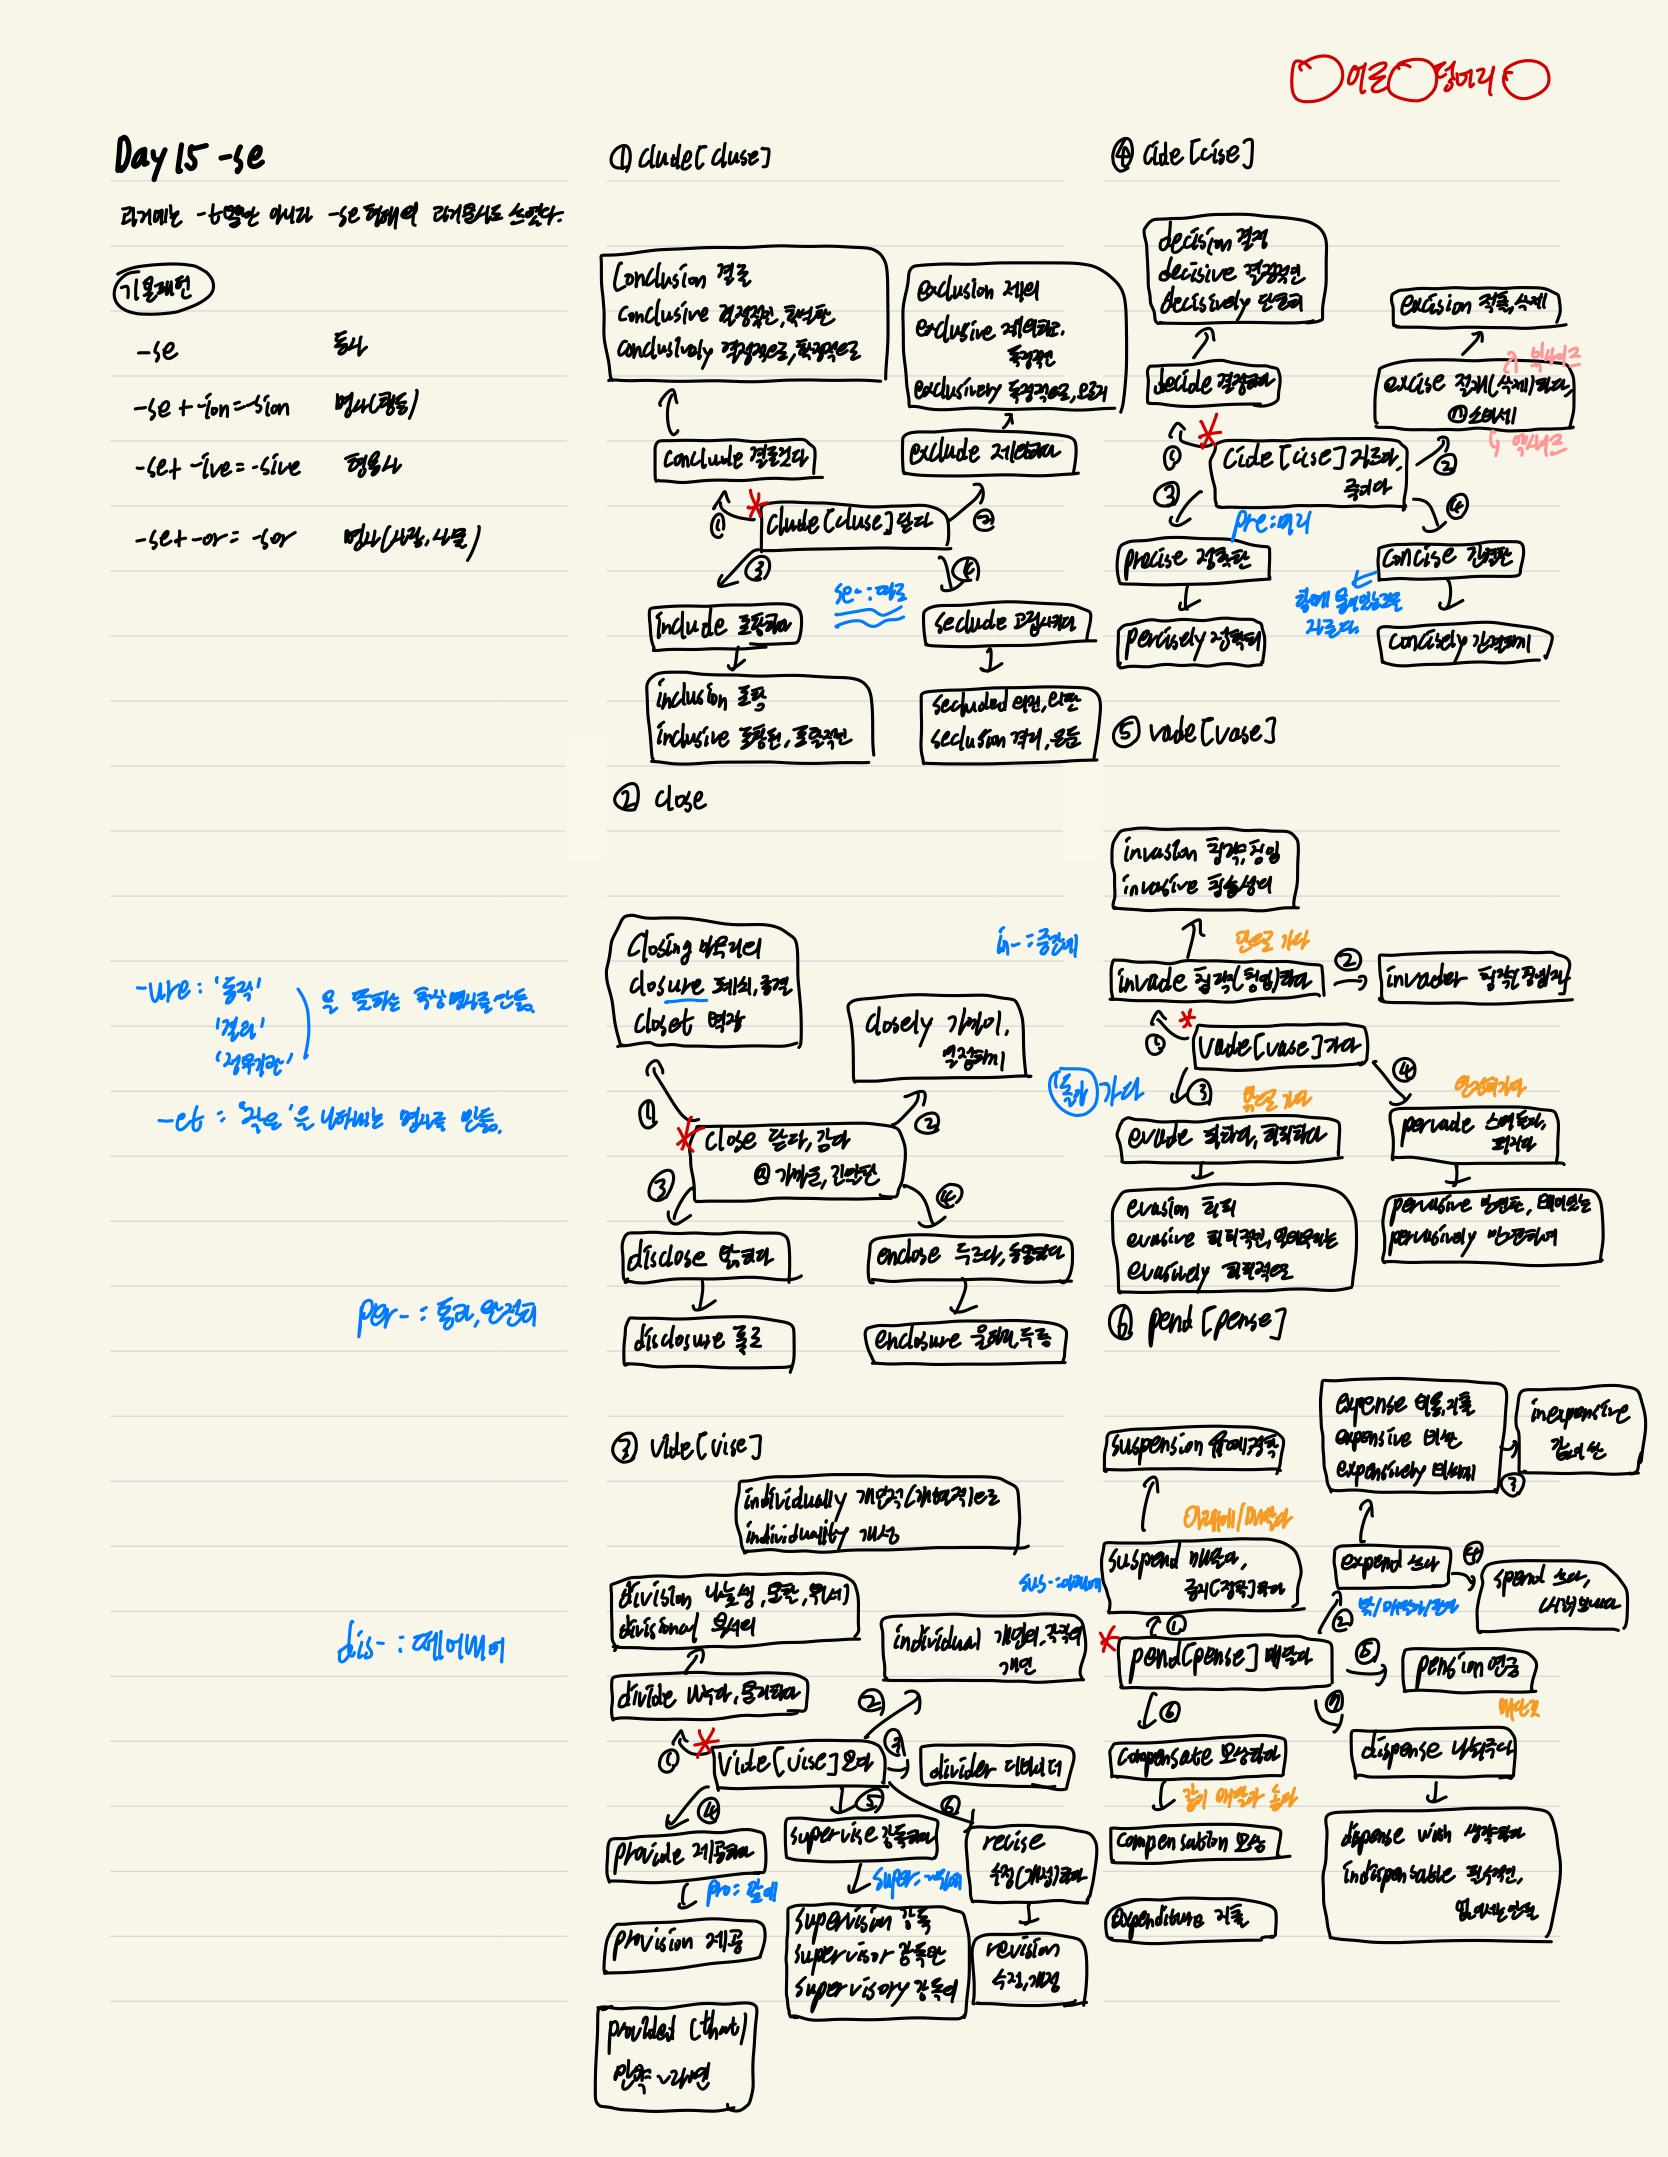 어근 덩어리
Day 15 -se
과거에는 -t뿐만 아니라 -se 형태의 과거분사도 쓰였다.
기본패턴
-se 동사
-se + -ion = -sion 명사(행동)
-se + -ive = -sive 형용사
-se + -or = -sor 명사(사람, 사물)
-ure : '동작'
'결과'
'정무기관'
을 뜻하는 추상명사를 만듦.
-et : '작은'을 나타내는 명사를 만듦.
per- : 통과, 완전히
dis- : 떼어내어
① clude [cluse]
conclusion 결론
conclusive 결정적인, 확실한
conclusively 결정적으로, 확정적으로
exclusion 제외
exclusive 제외하고,
독점적인
exclusively 독점적으로, 오로지
conclude 결론짓다
exclude 제외하다
① clude [cluse] 닫다 ②
③ ④
se- : 따로
include 포함하다
seclude 고립시키다
inclusion 포함
inclusive 포함된, 포괄적인
secluded 외진, 외딴
seclusion 격리, 은둔
② close
closing 마무리의
closure 폐쇄, 종결
closet 벽장
closely 가까이,
열심히
in- : 중간에
① ②
close 닫다, 감다
ⓐ 가까운, 친밀한
③ ④
disclose 밝히다
enclose 두르다, 동봉하다
disclosure 폭로
enclosure 울타리, 두름
③ vide [vise]
individually 개인적(개별적)으로
individuality 개성
division 나눗셈, 분할, 부서
divisional 부서의
individual 개인의, 각각의
개인
divide 나누다, 분리하다
① vide [vise] 보다 ② ③
divider 디바이더
④ ⑤ ⑥
provide 제공하다
supervise 감독하다
revise
수정(개정)하다
pro : 앞에
super : ~위에
provision 제공
supervision 감독
supervisor 감독관
supervisory 감독의
revision
수정, 개정
provided (that)
만약 ~라면
④ cide [cise]
decision 결정
decisive 결정적인
decisively 단호히
excision 적출, 삭제
decide 결정하다
excise 절제(삭제)하다,
ⓝ 소비세
① cide [cise] 자르다, ②
죽이다
③ ④
pre : 미리
precise 정확한
concise 간결한
함께 붙어있는것을
자르다
percisely 정확히
concisely 간결하게
⑤ vade [vase]
invasion 침략, 침입
invasive 침습성의
안으로 가다
invade 침략(침입)하다 ②
invader 침략(침입)자
① vade [vase] 가다
③ ④
돌아 가다
밖으로 가다
완전히 가다
evade 피하다, 회피하다
pervade 스며들다,
퍼지다
evasion 회피
evasive 회피적인, 얼버무리는
evasively 회피적으로
pervasive 만연한, 배어있는
pervasively 만연하여
⑥ pend [pense]
expense 비용, 지출
expensive 비싼
expensively 비싸게
inexpensive
값이 싼
③
suspension 유예, 정학
아래에/매달다
suspend 매달다,
금지[정학]하다
sus- : 아래에
expend 쓰다 ④
spend 쓰다,
(시간)보내다
① ②
pend [pense] 매달다 ⑤
pension 연금
매단것
⑥ ⑦
compensate 보상하다
dispense 나눠주다
같이 매달아 놓다
compensation 보상
dispense with 생략하다
indispensable 필수적인,
없어서는 안될
expenditure 지출